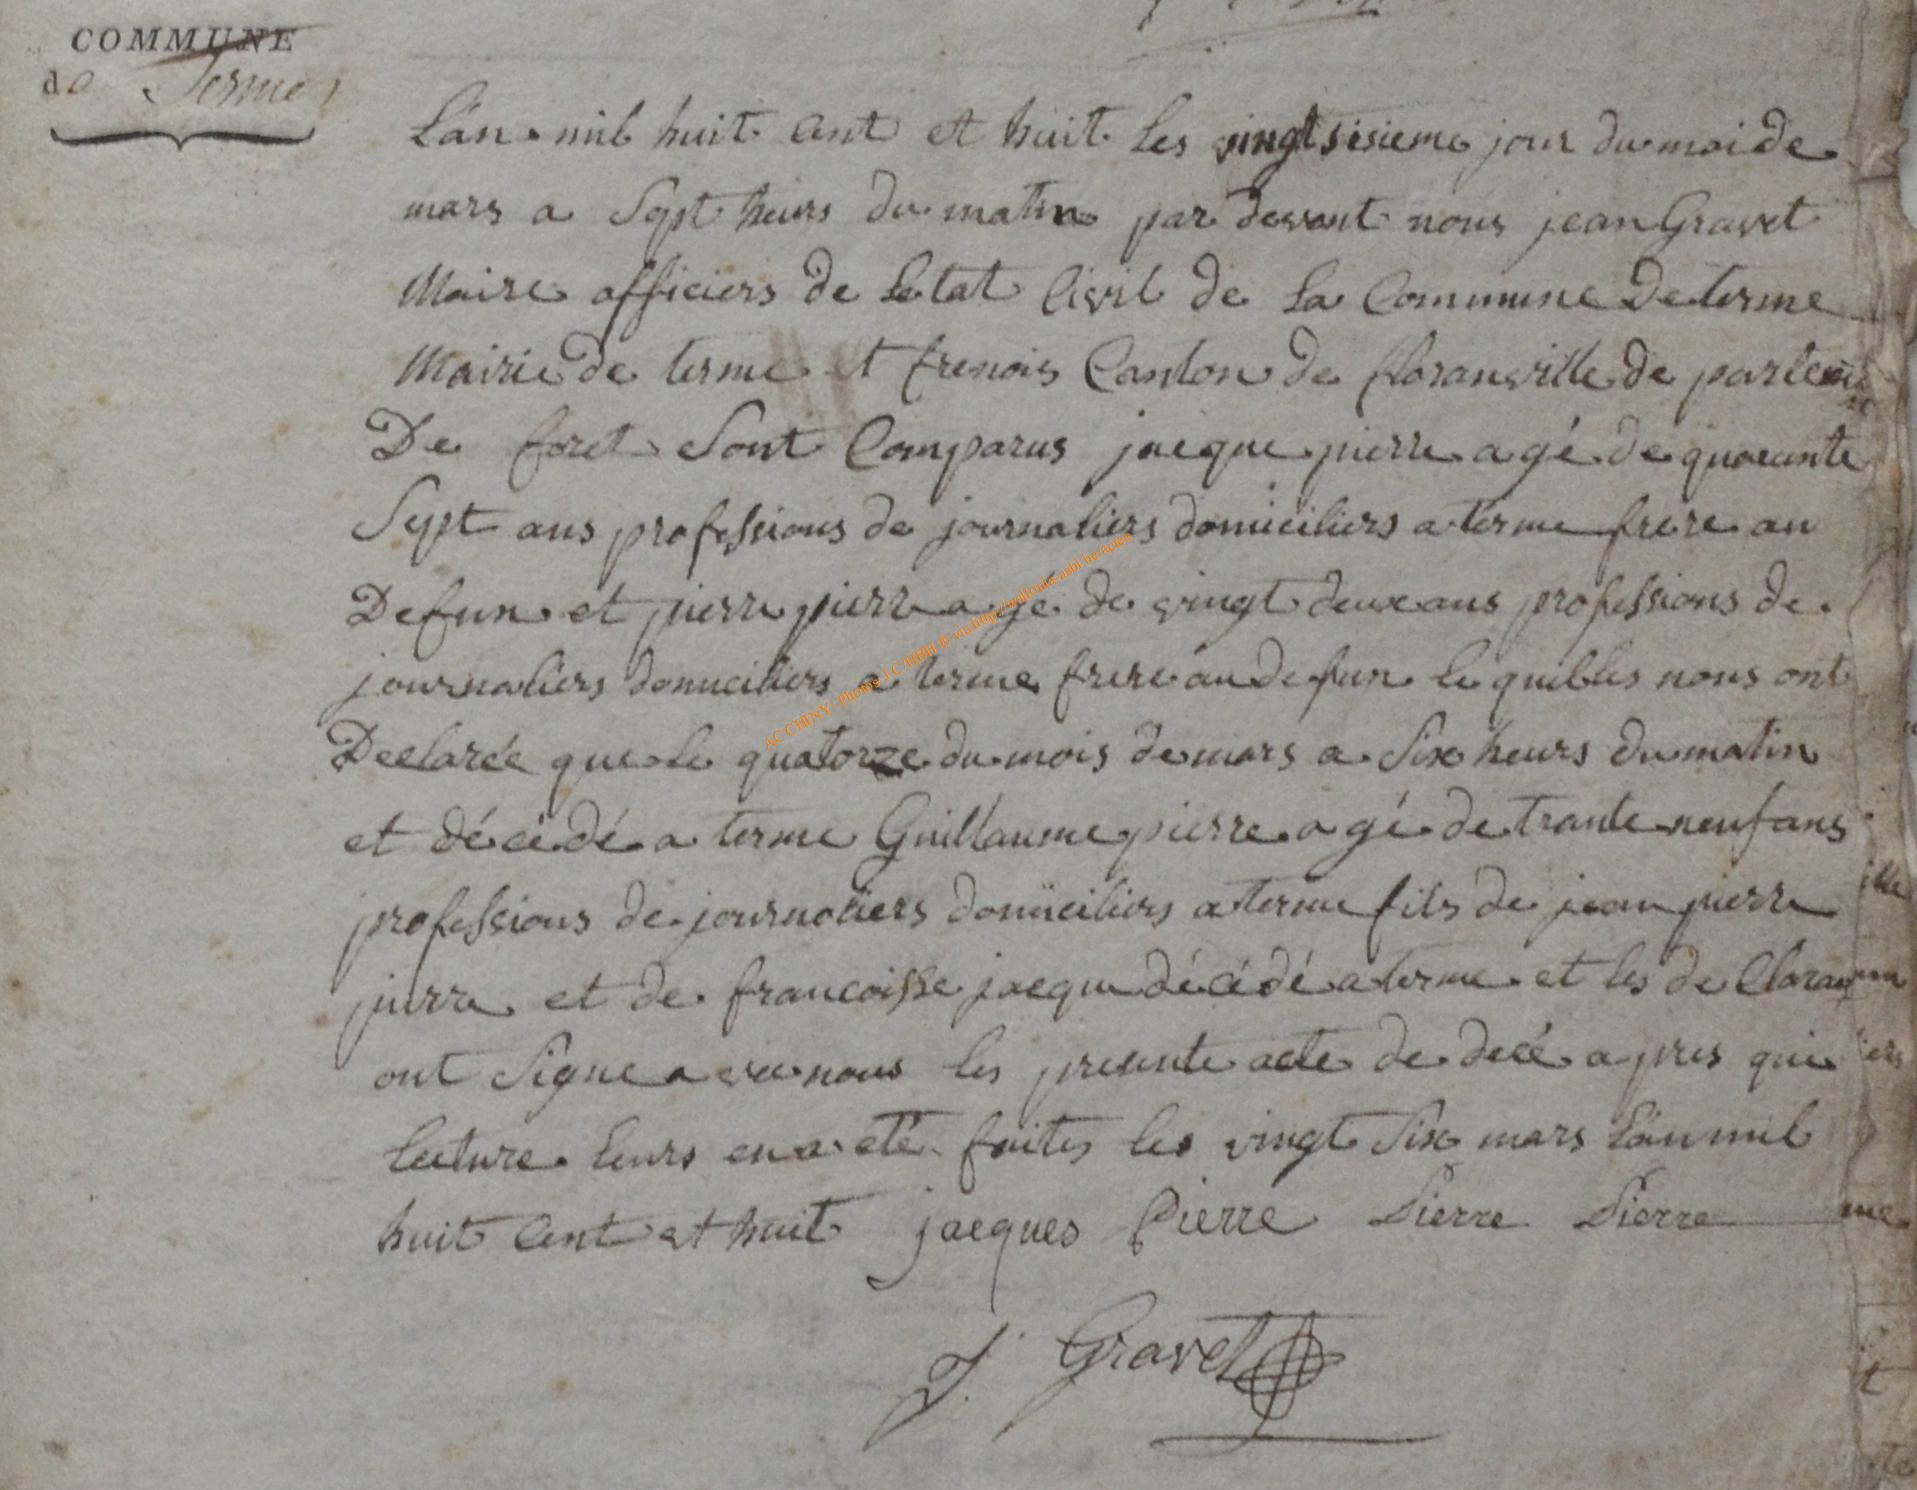 COMMUNE
de Terme
L'án mil huit Cent et huit les vingtsisieme jour du moi de
mars a Sept heurs du matin par devant nous jean Gravet
Maire officiers de Letat Civil de La Commune De terme
Mairie de terme et frenois Canton de floranville de partem
De foret Sont Comparus jacque pierre agé de quarante
Sept ans professions de journaliers domiciliers a terme frere au
Defun et pierre pierre agé de vingt deux ans professions de
journaliers domiciliers a terme frere au defun le quibles nous ont
Declarée que le quatorze du mois de mars a Six heurs du matin
et décédé a terme Guillaume pierre agé de trante neuf ans
professions de journaliers domiciliers a terme fils de jean pierre
pierre et de francoisse jacque décédé a terme et les de Claran
ont Signe avec nous les presente acte de decé apres qui
lecture leurs en a eté faites les vingt Six mars L'án mil
huit Cent et huit jacques Pierre Pierre Pierre
J. Gravet
ACCHINY- Photos J C HBH © via http://wallonia-asbl.be/acte